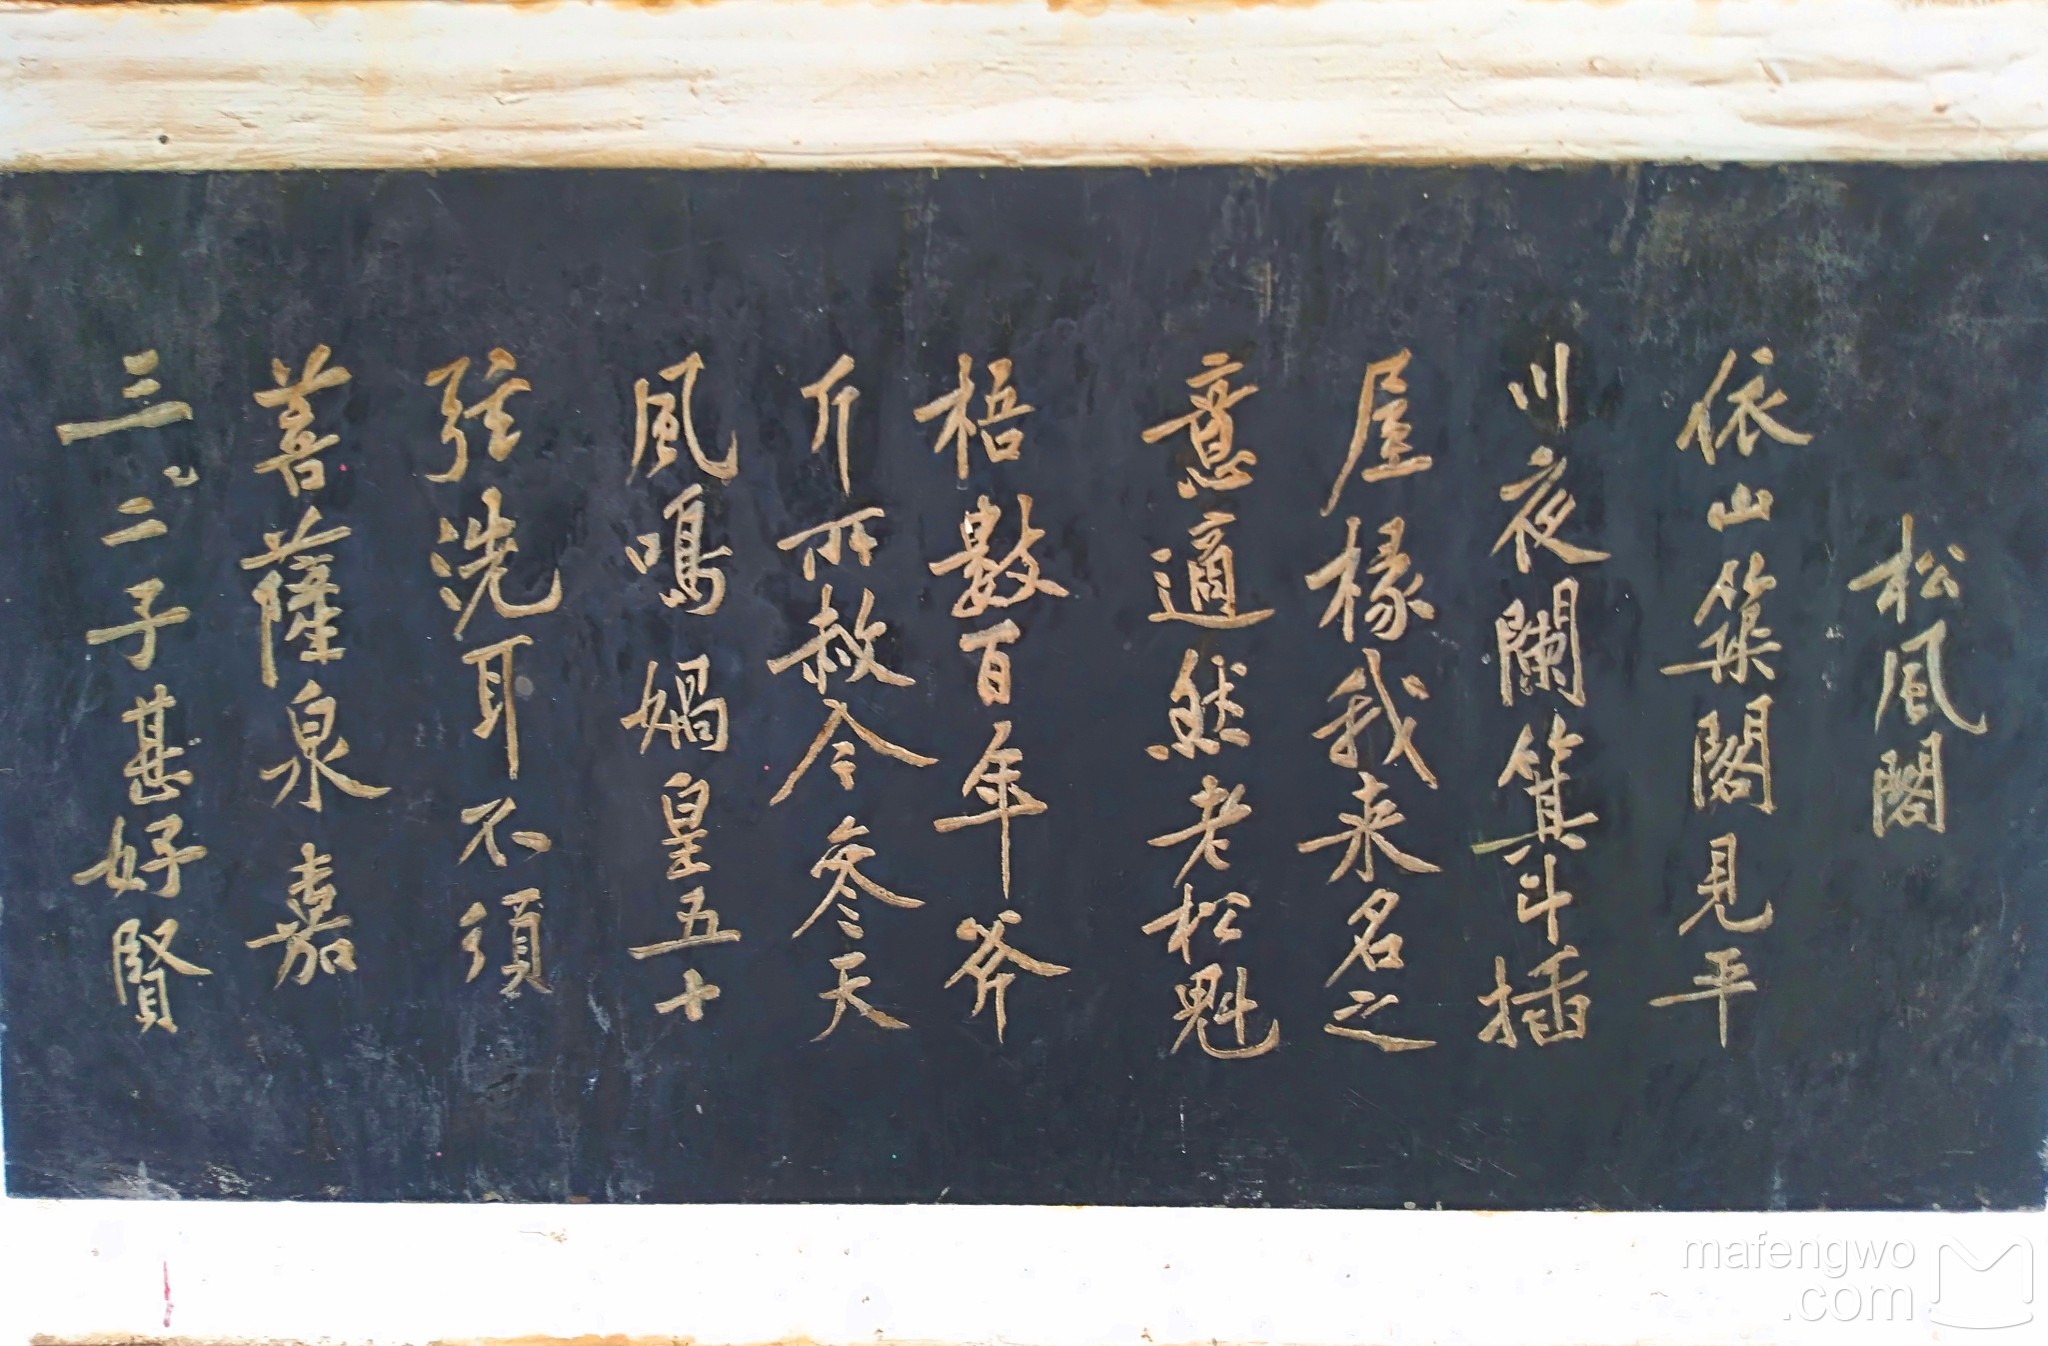 松風閣
依山築閣見平
川夜闌箕斗插
屋椽我来名之
意適然老松魁
梧數百年斧
斤所赦今參天
風鳴媧皇五十
弦洗耳不須
菩薩泉嘉
三〻二子甚好賢
mafengwo
.com